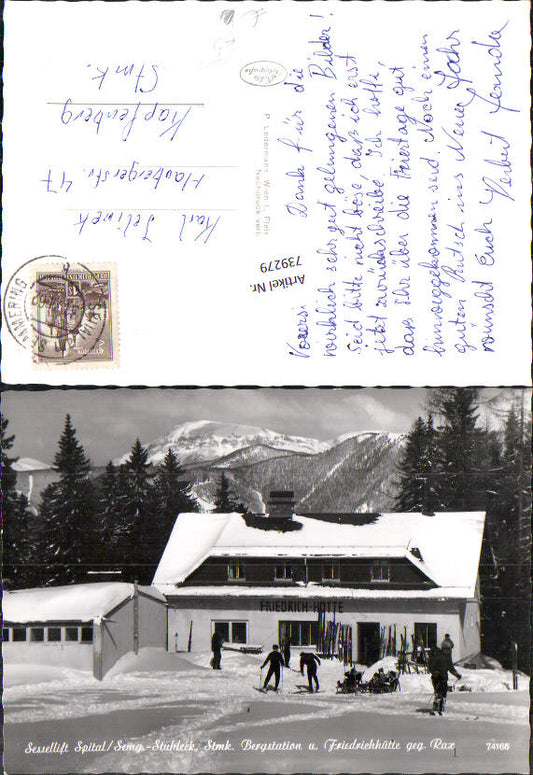 Vorers:
Dank für die
wirklich sehr gut gelungenen Bilder!
Seid bitte nicht böse, daß ich erst
jetzt zurückschreibe. Ich hoffe,
dass ihr über die Feiertage gut
hinweggekommen seid. Noch einen
guten Rutsch ins Neue Jahr
wünscht Euch Herbert
P. Ledermann, Wien I, Fleischm
Nachdruck verb.
Artikel Nr.
739279
Karl Jelinek
47
Kapfenberg
Stmk.
SEMMERING
FRIEDRICH-HÜTTE
Sessellift Spital/Semg.-Stuhleck, Stmk. Bergstation u. Friedrichhütte geg. Rax
74165